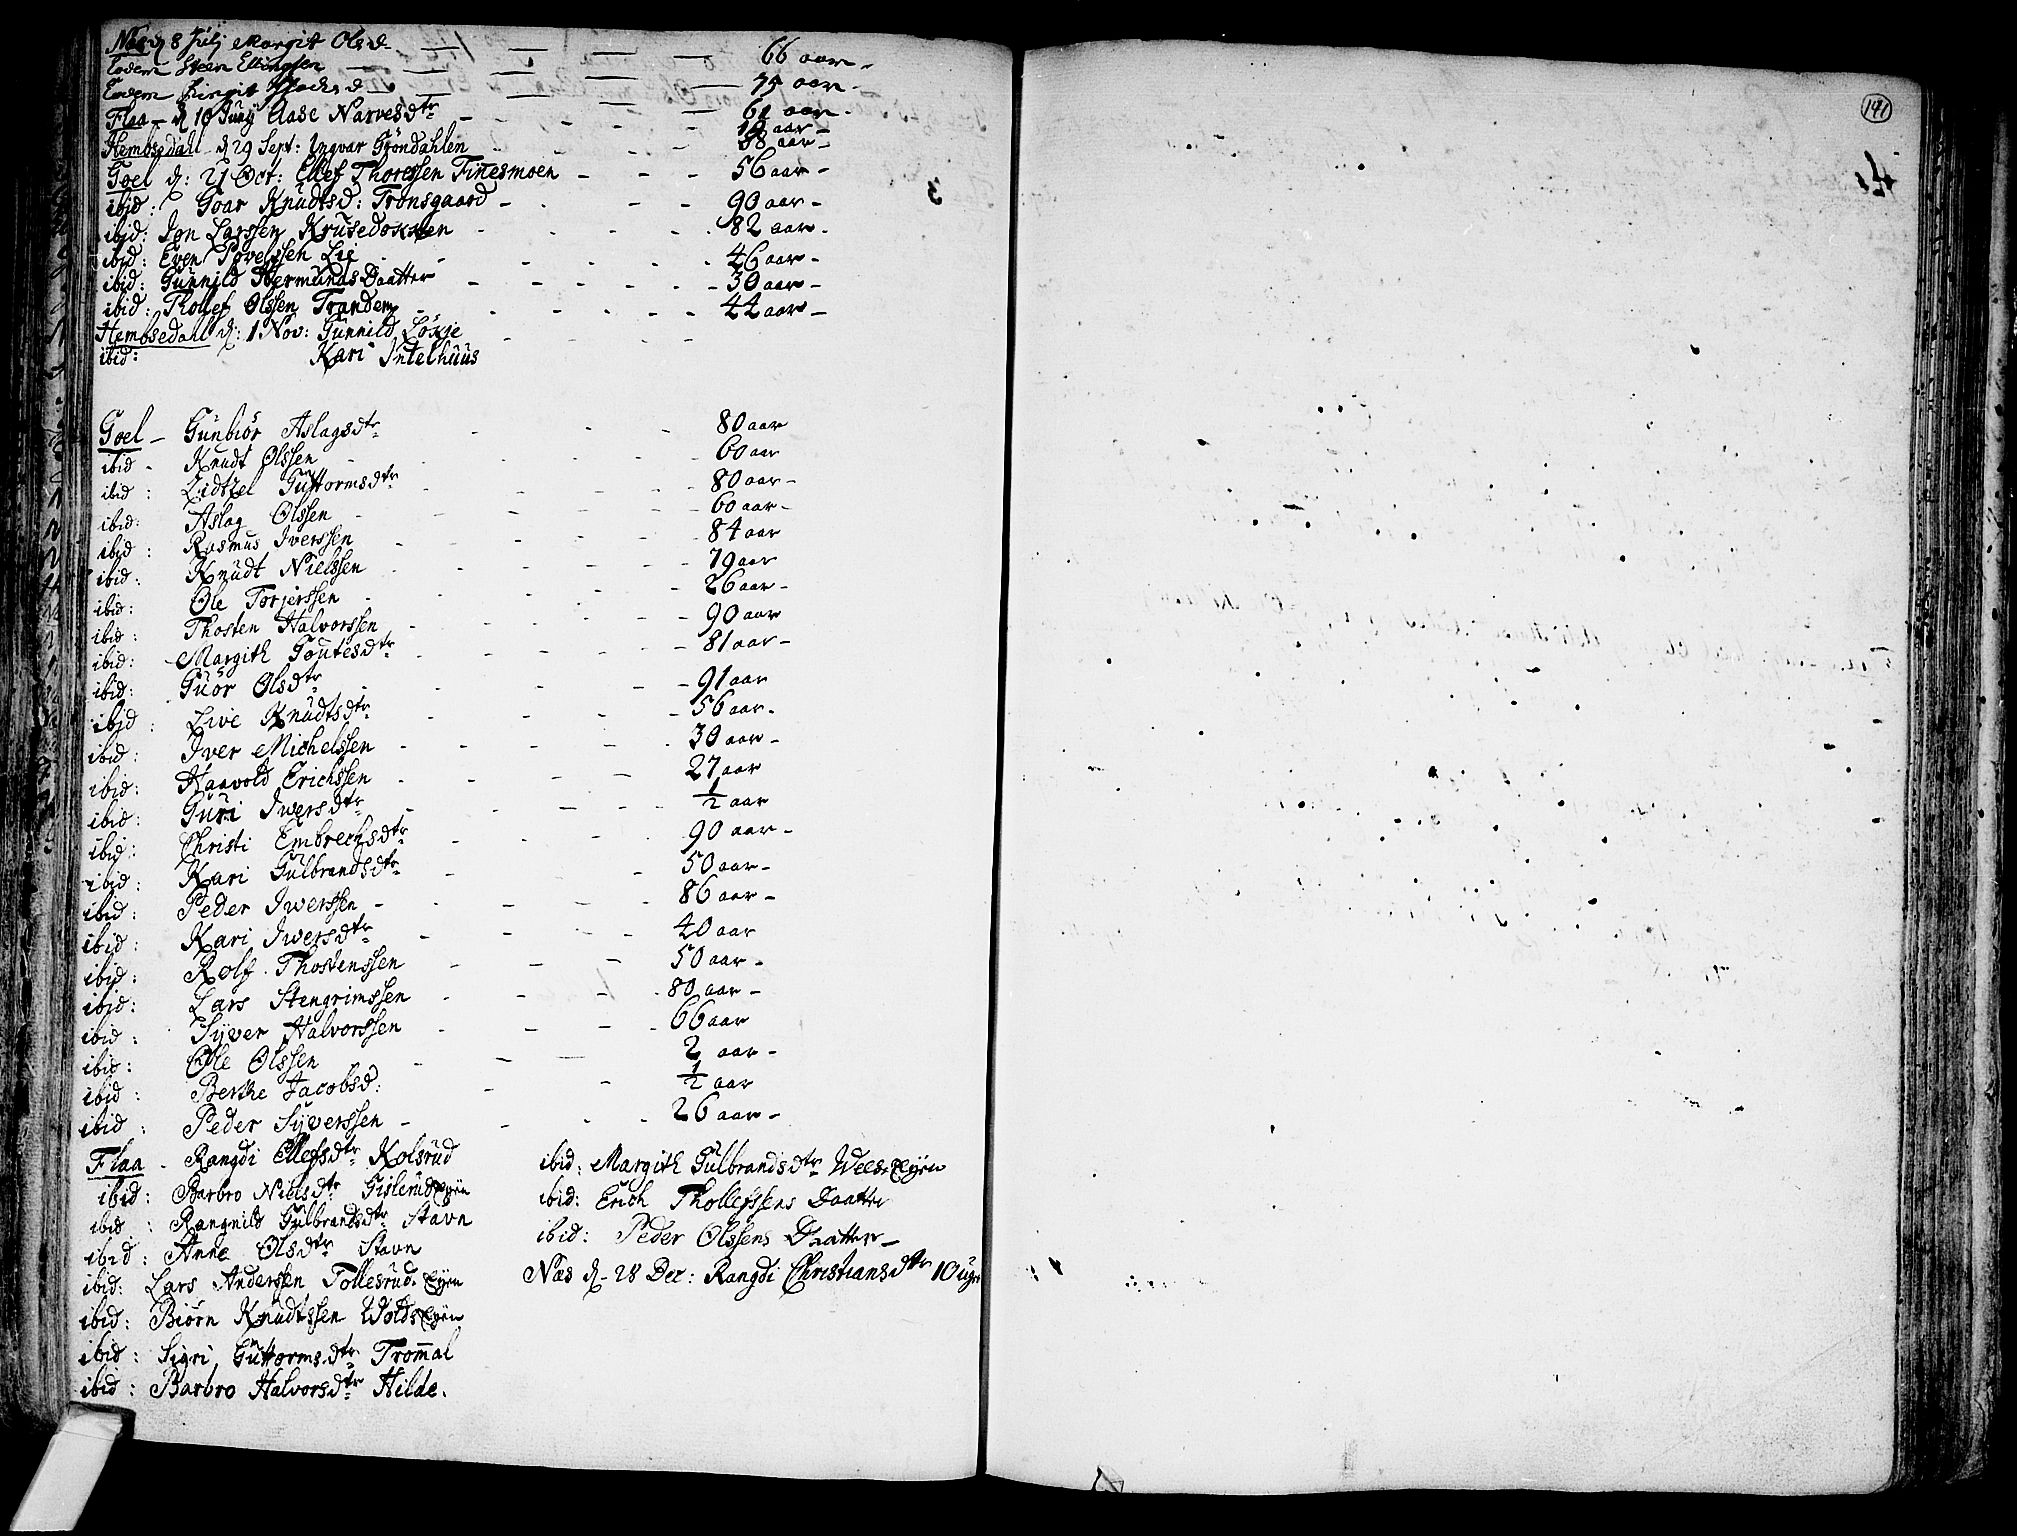 Næs d 8 Julj Margit Olsd. 66 aar.
Eodem Steen Ellingsen 75 aar.
Eodem Birgit d. 61 aar.
Flaa - d 10 Junij Aase Narvesdtr 19 aar
Hembsedahl d 29 Sept: Ingvar Gröndahlen 88 aar
Goel d: 21 Oct: Ellef Thoressen Finesmoen 56 aar
ibid: Goar Knudtsd: Tronsgaard 90 aar
ibid: Jon Larssen Krusedokken 82 aar
ibid: Even Povelssen Lie 46 aar
ibid: Gunnild HermundsDaatter 30 aar
ibid: Thollef Olssen Trandem 44 aar
Hembsedahl d: 1 Nov: Gunnild Lökje
ibid: Kari Intelhuus
Goel - Gunbiör Aslagsdtr 80 aar
ibid - Knudt Olssen 60 aar
ibid: Lidtzel Guttormsdtr 80 aar
ibid: Aslag Olssen 60 aar
ibid: Rasmus Iverssen 84 aar
ibid: Knudt Nielssen 79 aar
ibid: Ole Torjerssen 26 aar
ibid: Thosten Halvorssen 90 aar
ibid: Margith Goutesdtr 81 aar
ibid: Guör Olsdtr 91 aar
ibid: Live Knudtsdtr 56 aar
ibid: Iver Michelssen 30 aar
ibid: Haavold Erichssen 27 aar
ibid: Guri Iwersdtr 1/2 aar
ibid: Christi Embrechsdtr 90 aar
ibid: Kari Gulbrandsdtr 50 aar
ibid: Peder Iwerssen 86 aar
ibid: Kari Iwersdtr 40 aar
ibid: Rolf Thostenssen 50 aar
ibid: Lars Stengrimssen 80 aar
ibid: Syver Halvorssen 66 aar
ibid: Ole Olssen 2 aar
ibid: Berthe Jacobsd: 1/2 aar
ibid: Peder Syverssen 26 aar
Flaa - Rangdi Ellefsdtr Kolsrud
ibid: Barbro Nilsdtr Gislerud Eyen
ibid: Rangnild Gulbrandsdtr Stavn
ibid: Anne Olsdtr Stavn
ibid: Lars Anderssen Tollesrud Eyen
ibid: Biörn Knudtssen Wolds Eyen
ibid: Sigri Guttormsdtr Trommal
ibid: Barbro Halvorsdtr Hilde.
ibid: Margith Gulbrandsdtr Wees Eyen
ibid: Erich Thollefssens Daatter
ibid: Peder Olssens Daatter
Næs d 28 Dec: Rangdi Christiansdtr 10 uger
141